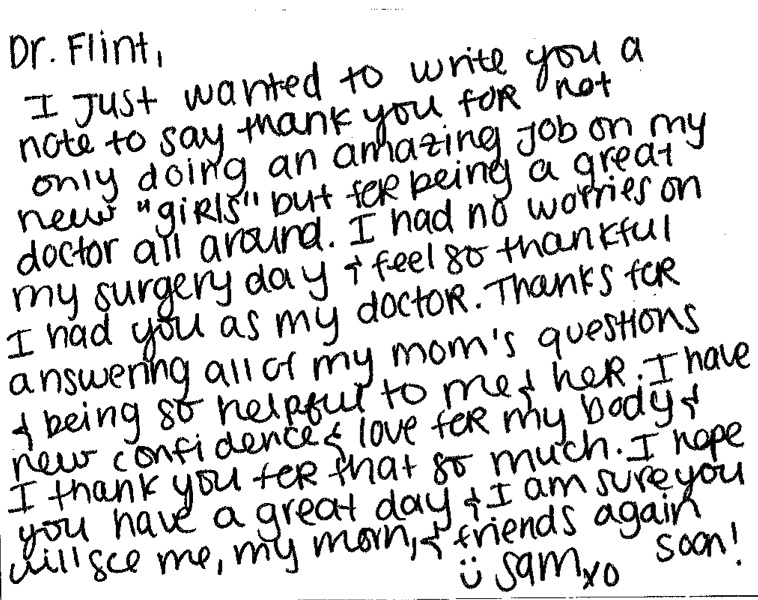 Dr. Flint,
I Just wanted to write you a
note to say thank you for not
only doing an amazing Job on my
new "girls" but for being a great
doctor all around. I had no worries on
my surgery day & feel so thankful
I had you as my doctor. Thanks for
answering all of my mom's questions
& being so helpful to me & her. I have
new confidence & love for my body &
I thank you for that so much. I hope
you have a great day & I am sure you
will see me, my mom, & friends again
soon!
ü Sam xo